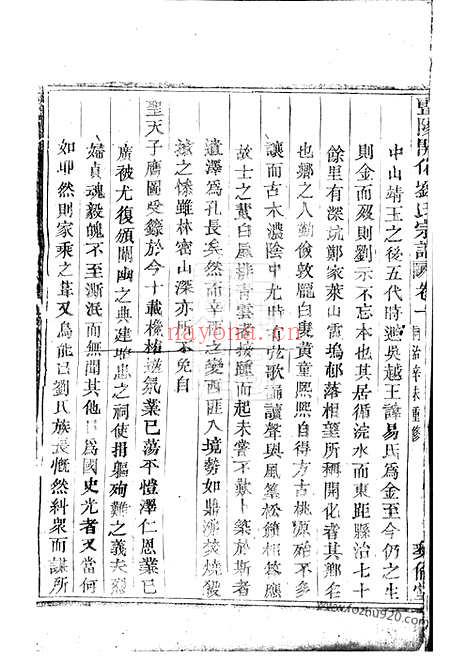 暨陽開化劉氏宗譜 卷一 同治辛未重修 彝倫堂
中山靖王之後五代時避吳越王諱易氏為金至今仍之生
則金而歿則劉示不忘本也其居循浣水而東距縣治七十
餘里有深坑鄭家萊山雷塢邨落相望所稱開化者其鄉在
也鄉之人勤儉敦龐白叟黃童熙熙自得方古桃源無多
讓而古木濃陰中尤時有弦歌誦讀聲與風篁松韻相答應
故士之戴白屋排青雲者接踵而起未嘗不歎卜築於斯者
遺澤為孔長矣然而辛酉之變西匪入境勢如鼎沸焚燒
掠之慘雖林密山深亦所不免自
聖天子膺圖受籙於今十載欃槍迷氣業已蕩平愷澤仁恩業已
廣被尤復頒闡幽之典建忠之祠使捐軀殉難之義夫
婦貞魂毅魄不至澌泯而無聞其他爲國史光者又當何
如耶然則家乘之葺又烏能已劉氏族長慨然糾衆而謀所
nayona.cn
www.fozhu920.com